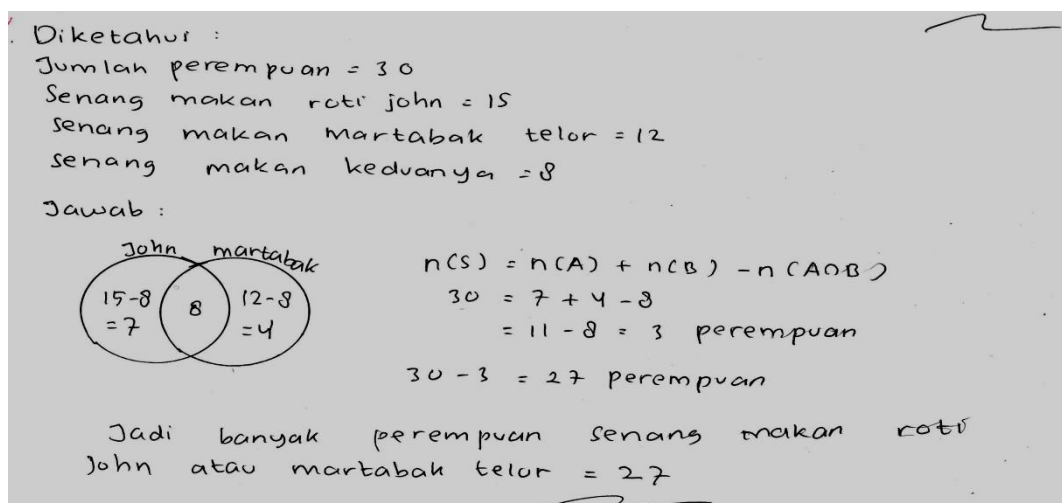 Diketahui :
Jumlah perempuan = 30
Senang makan roti john = 15
Senang makan martabak telor = 12
Senang makan keduanya = 8
Jawab :
John martabak
15-8 8 12-8
=7 =4
n(S) = n(A) + n(B) - n(A∩B)
30 = 7 + 4 - 8
= 11 - 8 = 3 perempuan
30 - 3 = 27 perempuan
Jadi banyak perempuan senang makan roti
John atau martabak telur = 27